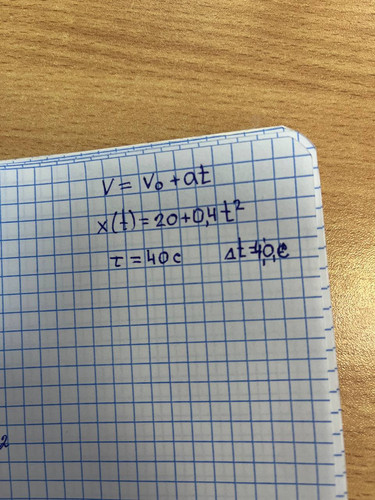 V = V₀ + at
x(t) = 20 + 0,4t²
τ = 40 с Δt = 40 с
2